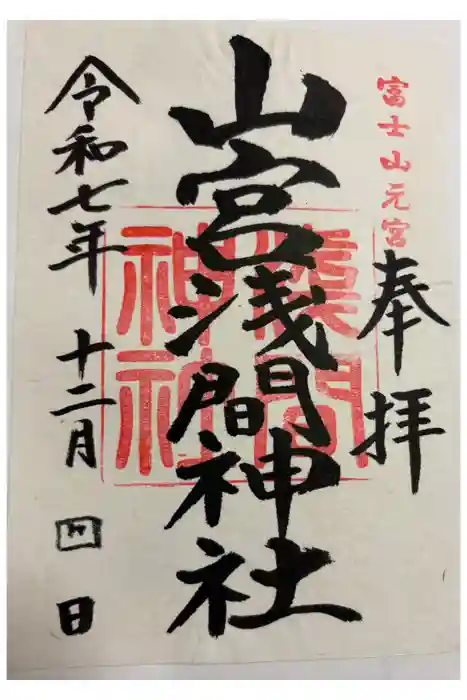 富士山元宮
奉拝
山宮浅間神社
淺間
神社
令和七年 十二月 四日